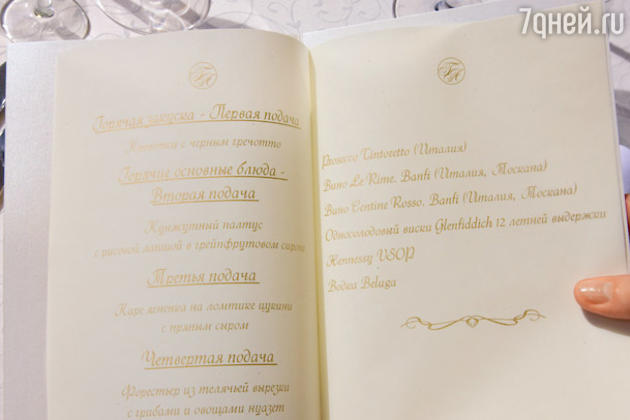 7дней.ru
Горячая закуска - Первая подача
с черным гречотто
Горячие основные блюда -
Вторая подача
Кунжутный палтус
с рисовой лапшой в грейпфрутовом сиропе
Третья подача
Каре ягненка на ломтике цукини
с пряным сыром
Четвертая подача
Форестьер из телячьей вырезки
с грибами и овощами нуазет
Prosecco Tintoretto (Италия)
Вино Le Rime, Banfi (Италия, Тоскана)
Вино Centine Rosso, Banfi (Италия, Тоскана)
Односолодовый виски Glenfiddich 12 летней выдержки
Hennessy VSOP
Водка Beluga